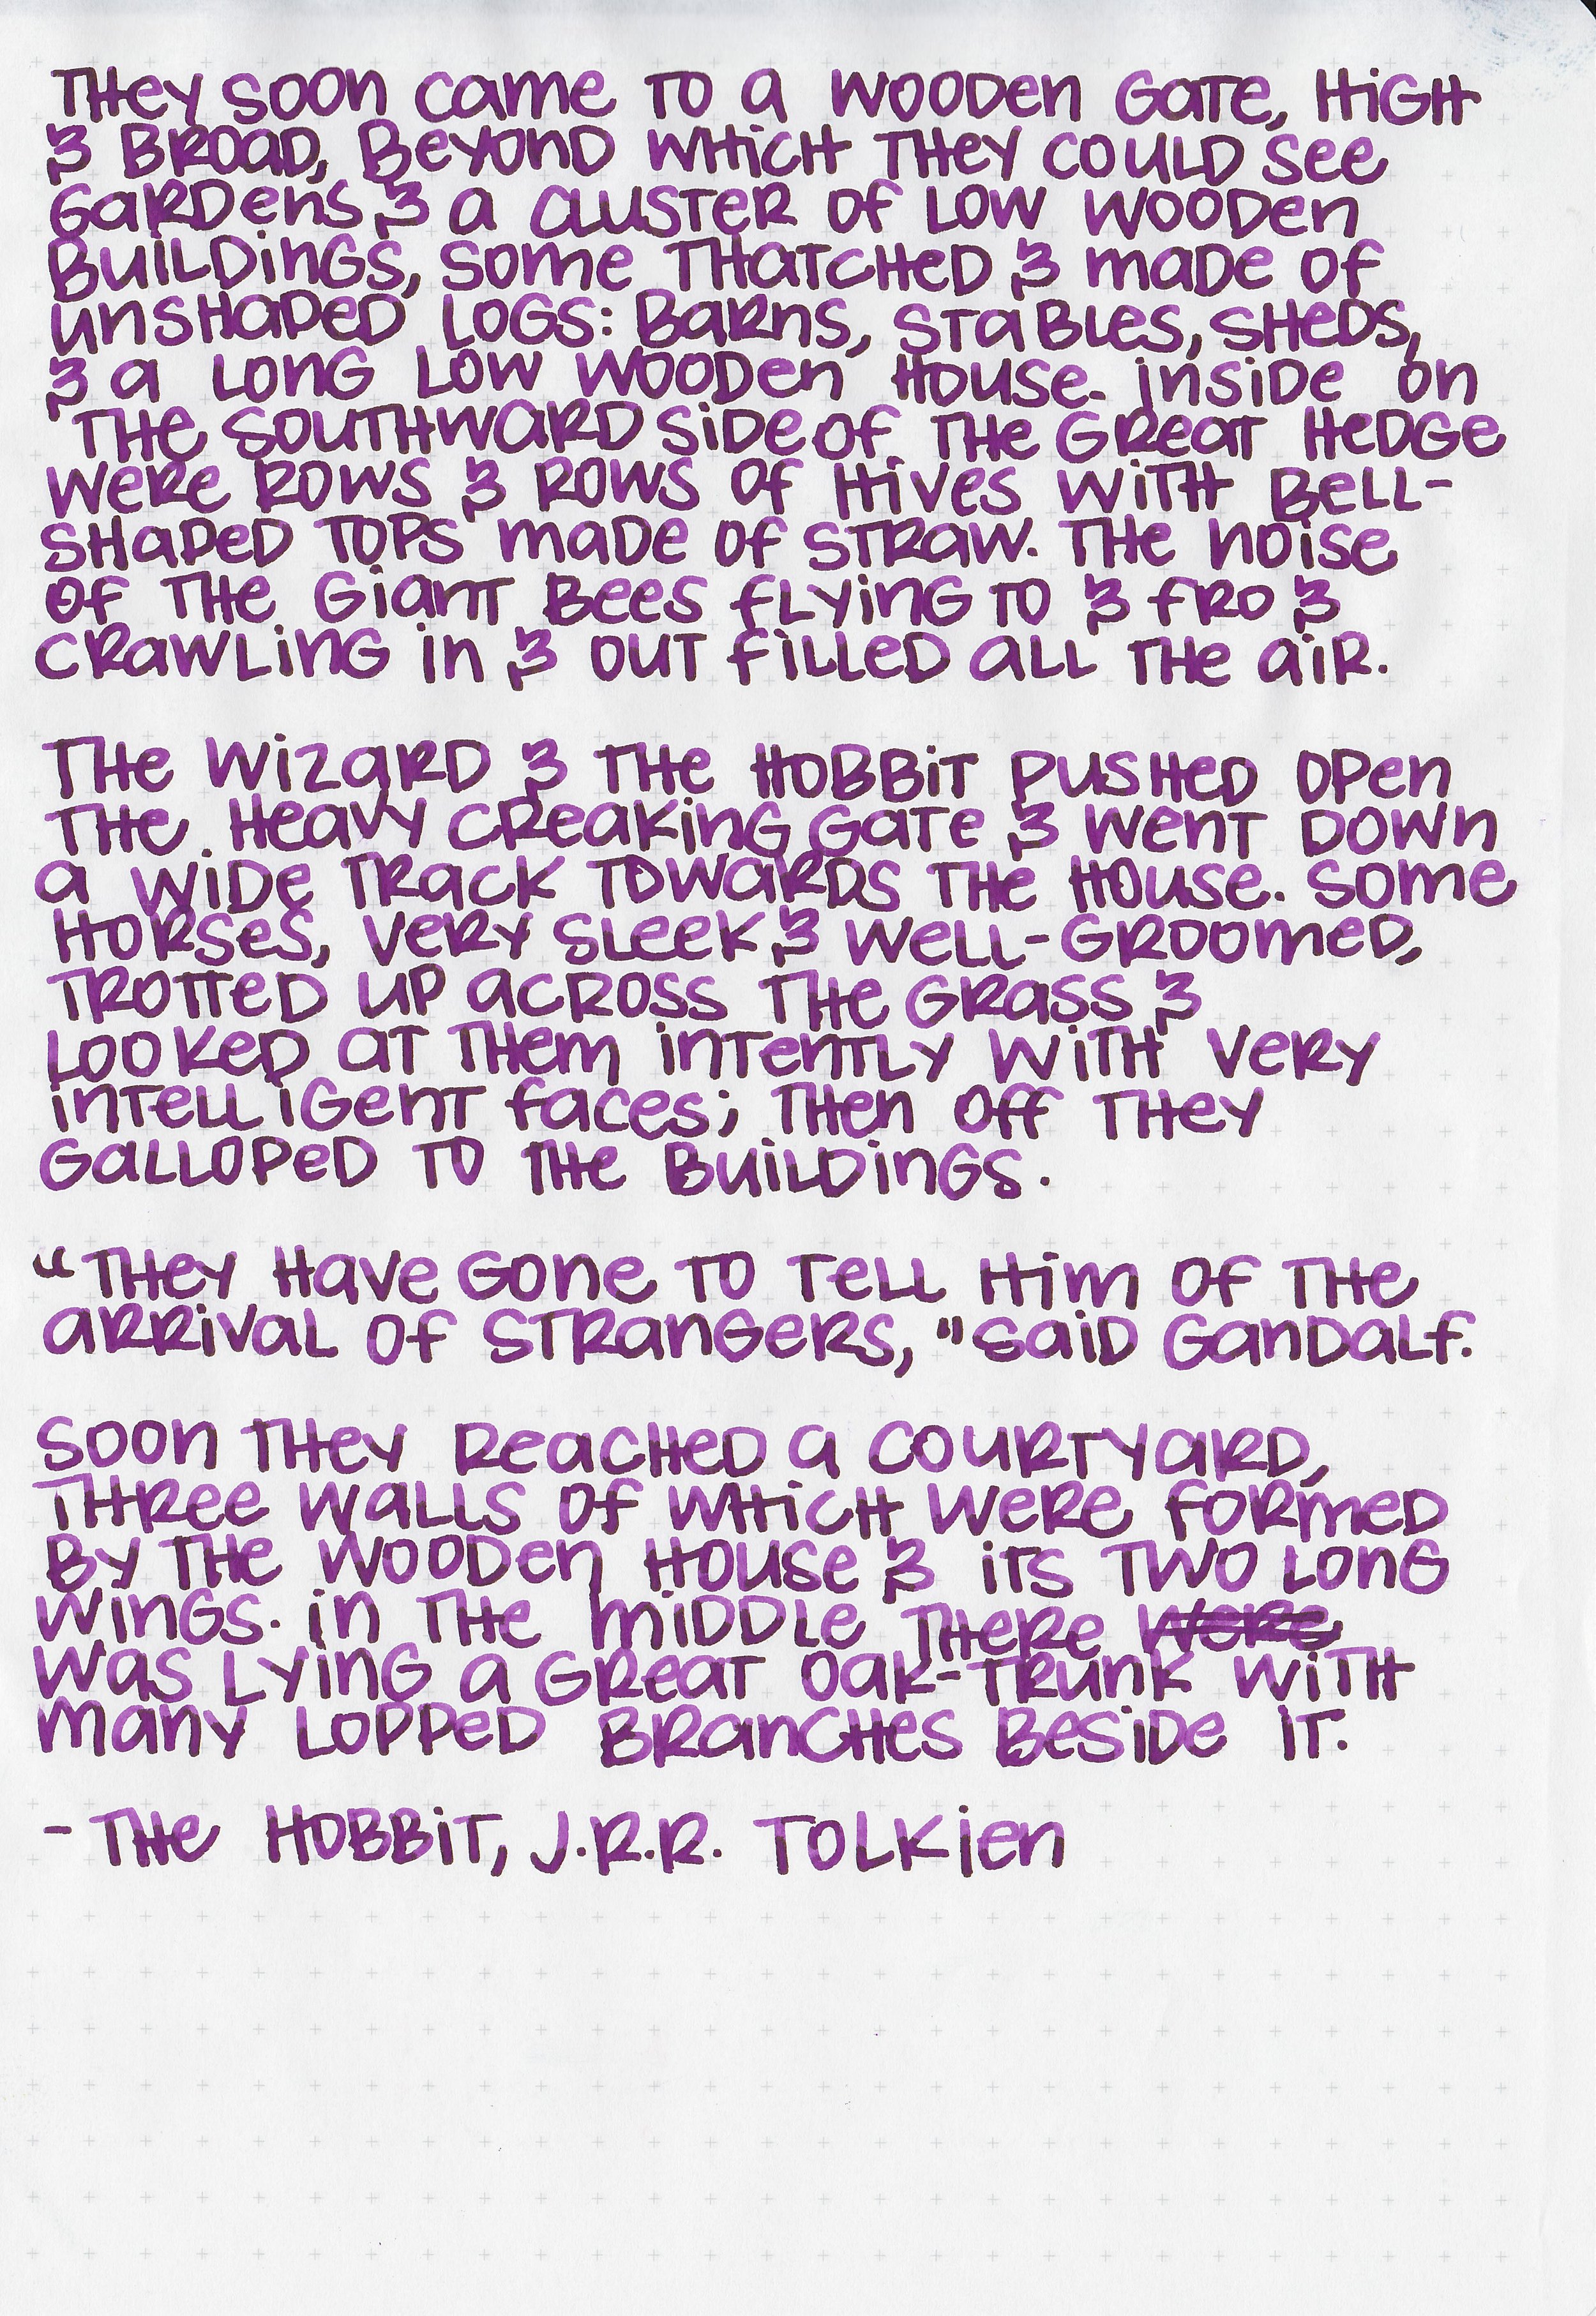 They soon came to a wooden gate, high
& broad, beyond which they could see
gardens & a cluster of low wooden
buildings, some thatched & made of
unshaped logs: barns, stables, sheds,
& a long low wooden house. inside on
the southward side of the great hedge
were rows & rows of hives with bell-
shaped tops made of straw. The noise
of the giant bees flying to & fro &
crawling in & out filled all the air.

The wizard & the hobbit pushed open
the heavy creaking gate & went down
a wide track towards the house. Some
horses, very sleek & well-groomed,
trotted up across the grass &
looked at them intently with very
intelligent faces; then off they
galloped to the buildings.

"They have gone to tell him of the
arrival of strangers," said Gandalf.

Soon they reached a courtyard,
three walls of which were formed
by the wooden house & its two long
wings. in the middle there were
was lying a great oak-trunk with
many lopped branches beside it.

- The Hobbit, J.R.R. Tolkien